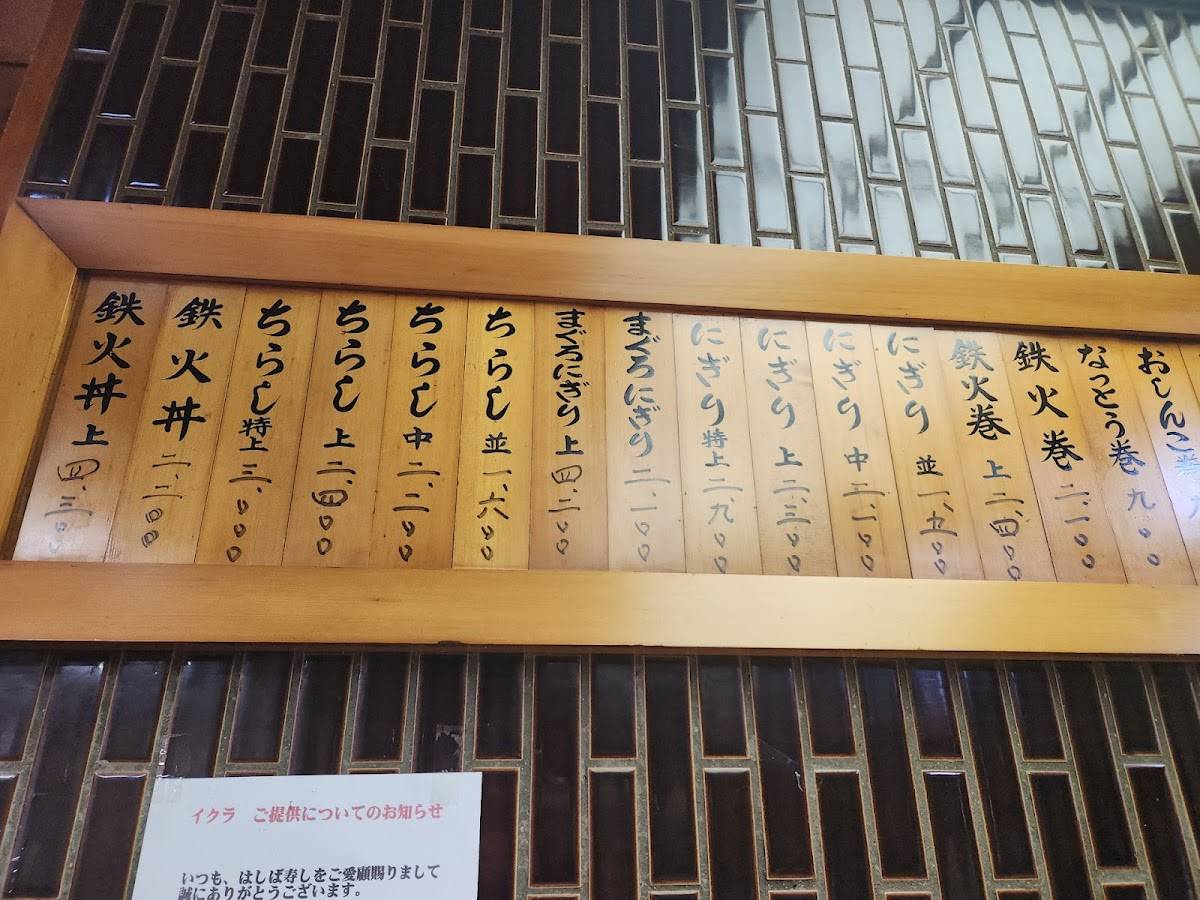 おしんこ巻
なっとう巻 九〇〇
鉄火巻 二、一〇〇
鉄火巻 上 二、四〇〇
にぎり 並 一、五〇〇
にぎり 中 二、一〇〇
にぎり 上 二、三〇〇
にぎり 特上 二、九〇〇
まぐろにぎり 二、一〇〇
まぐろにぎり 上 四、二〇〇
ちらし 並 一、六〇〇
ちらし 中 二、二〇〇
ちらし 上 二、四〇〇
ちらし 特上 三、〇〇〇
鉄火丼 二、二〇〇
鉄火丼 上 四、三〇〇
イクラ ご提供についてのお知らせ
いつも、はしば寿しをご愛顧賜りまして
誠にありがとうございます。